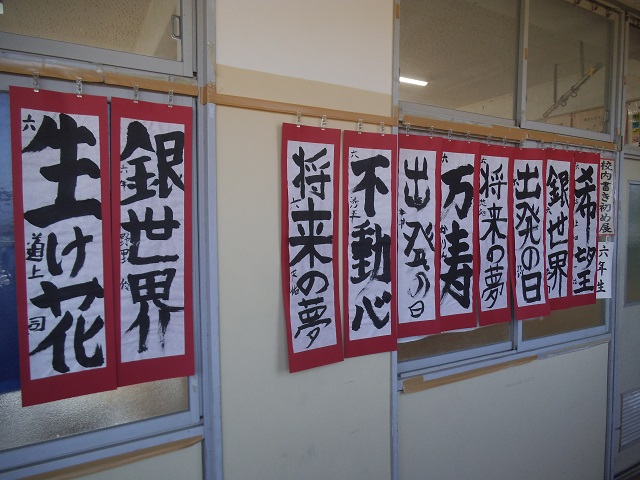 校内書き初め展
六年生
希望
銀世界
出発の日
将来の夢
万寿
出発の日
不動心
六
将来の夢
銀世界
六年
生け花
六
道上 司